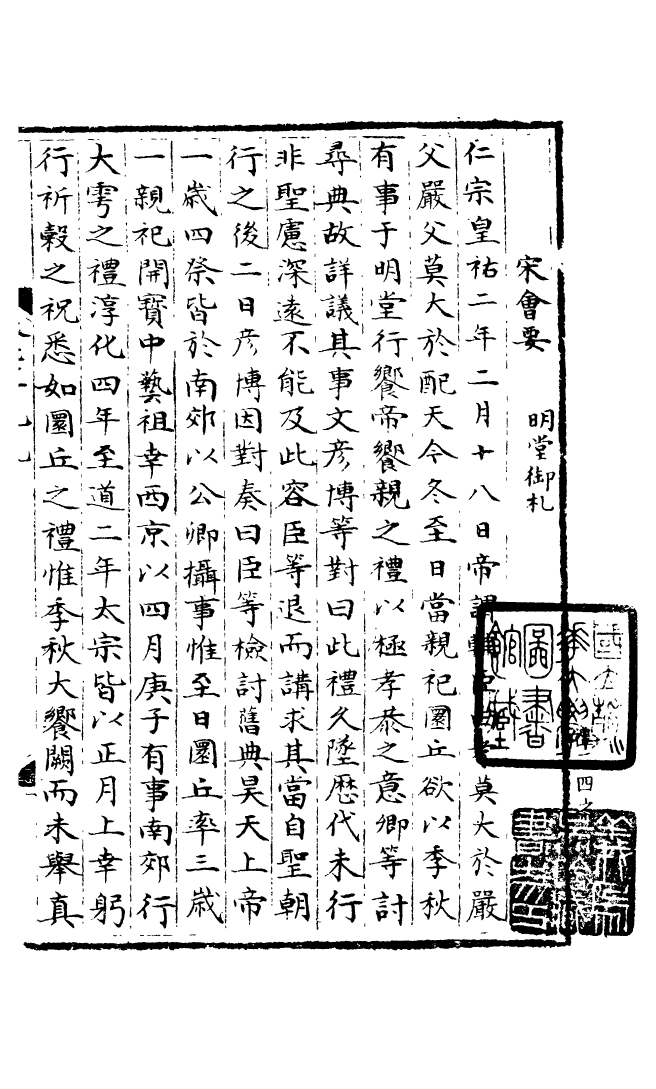 宋會要
明堂御札
仁宗皇祐二年二月十八日帝謂輔臣曰孝莫大於嚴
父嚴父莫大於配天今冬至日當親祀圜丘欲以季秋
有事于明堂行饗帝饗親之禮以極孝恭之意卿等討
尋典故詳議其事文彥博等對曰此禮久墜歷代未行
非聖慮深遠不能及此容臣等退而講求其當自聖朝
行之後二日彥博因對奏曰臣等檢討舊典昊天上帝
一歲四祭皆於南郊以公卿攝事惟至日圜丘率三歲
一親祀開寶中藝祖幸西京以四月庚子有事南郊行
大雩之禮淳化四年至道二年太宗皆以正月上幸躬
行祈穀之祝悉如圜丘之禮惟季秋大饗闕而未舉真